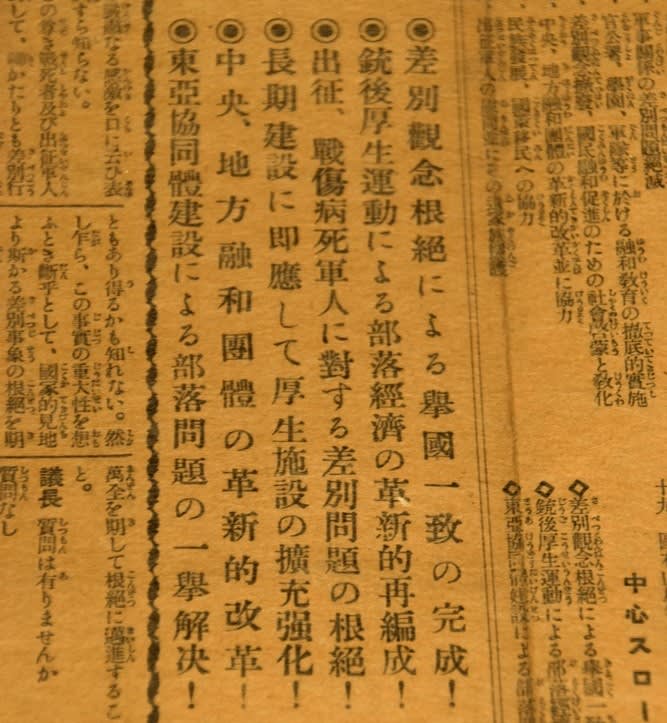 軍事關係の差別問題絶滅
官公署、學園、軍隊等に於ける融和教育の徹底的實施
差別觀念撤廢、國民融和促進のための社會啓蒙と敎化
中央、地方融和團體の革新的改革並に協力
民族發展、國策移民への協力
中心スロー
◇差別觀念根絶による擧國一
◇銃後厚生運動による部落經
◇東亞協同體建設による部落
◉差別觀念根絶による擧國一致の完成！
◉銃後厚生運動による部落經濟の革新的再編成！
◉出征、戰傷病死軍人に對する差別問題の根絶！
◉長期建設に即應して厚生施設の擴充强化！
◉中央、地方融和團體の革新的改革！
◉東亞協同體建設による部落問題の一擧解决！
誠なる感激を口に云ひ表
すら知らない。
の尊き戰死者及び出征軍人
して、聊かたりとも差別行
ともあり得るかも知れない。然
し乍ら、この事實の重大性を想
ふとき斷乎として、國家的見地
より斯かる差別事象の根絶を期
萬全を期して根絶に邁進するこ
と。
議長 質問は有りませんか
質問なし